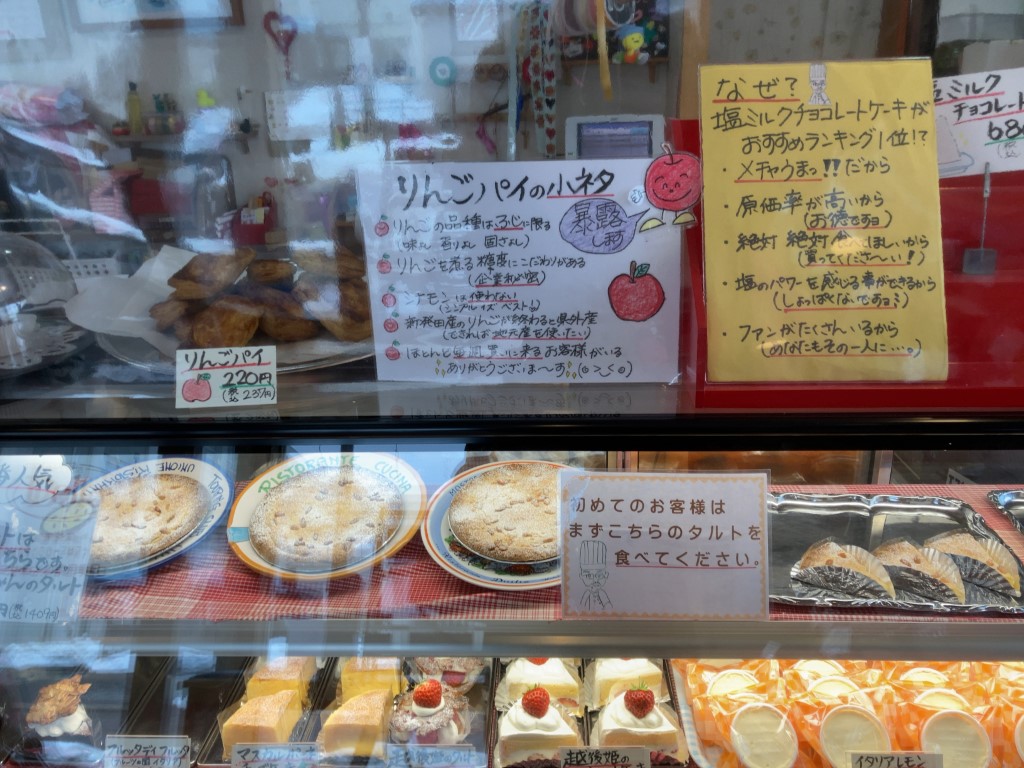 りんごパイの小ネタ
暴露
します
りんごの品種はふじに限る
りんごを煮る糖度にこだわりがある
(企業秘密)
シナモンは使わない
(シンプルイズベスト)
新発田産のりんごが終わると県外産
(できれば地元産を使いたい)
ほとんど毎週買いに来るお客様がいる
ありがとうございま〜す
りんごパイ
220円
(税込237円)
なぜ?
塩ミルクチョコレートケーキが
おすすめランキング1位!?
・メチャウまっ!!だから
・原価率が高いから
(お徳ですヨ)
・絶対 絶対 食べてほしいから
(買ってくださ〜い!)
・塩のパワーを感じる事ができるから
(しょっぱくないですヨ)
・ファンがたくさんいるから
(あなたもその一人に…。)
塩ミルク
チョコレート
人気
初めてのお客様は
まずこちらのタルトを
食べてください。
RISTORANTE
CUCINA
越後姫の
イタリアレモン